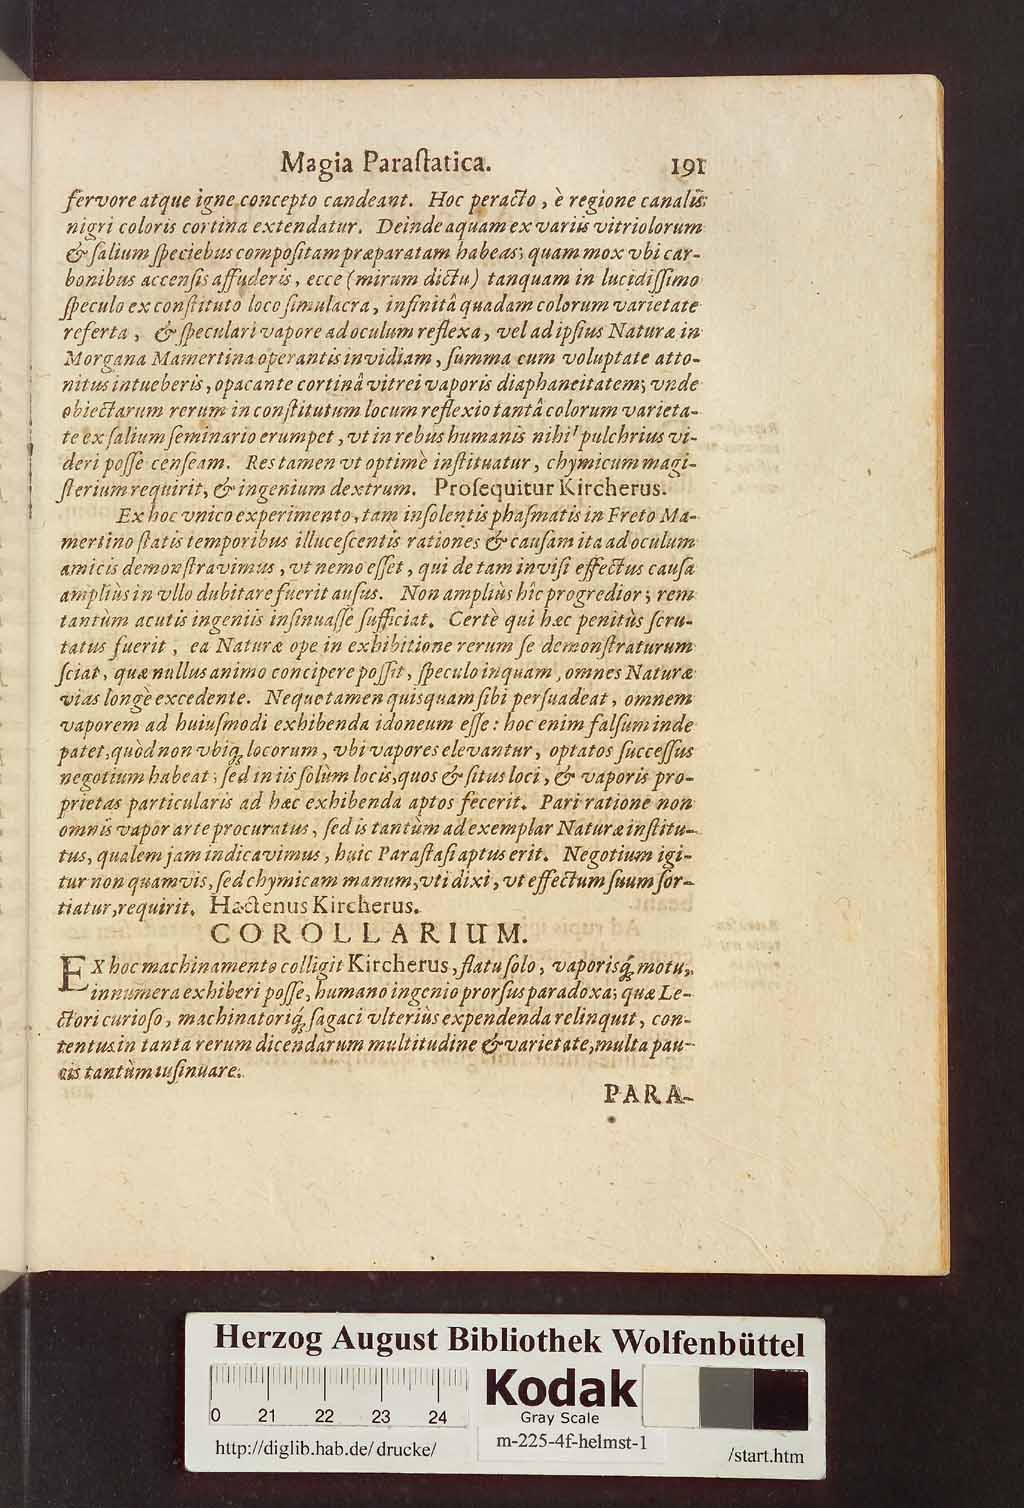 Magia Paraſtatica. 191
fervore atque igne concepto candeant. Hoc peracto, è regione canalis
nigri coloris cortina extendatur. Deinde aquam ex variis vitriolorum
& ſalium ſpeciebus compoſitam præparatam habeas; quam mox vbi car-
bonibus accenſis affuderis, ecce (mirum dictu) tanquam in lucidiſſimo
ſpeculo ex conſtituto loco ſimulacra, infinitâ quadam colorum varietate
referta, & ſpeculari vapore ad oculum reflexa, vel ad ipſius Naturæ in
Morgana Mamertina operantis invidiam, ſumma cum voluptate atto-
nitus intueberis, opacante cortinâ vitrei vaporis diaphaneitatem; vnde
obiectarum rerum in conſtitutum locum reflexio tantâ colorum varieta-
te ex ſalium ſeminario erumpet, vt in rebus humanis nihil pulchrius vi-
deri poſſe cenſeam. Res tamen vt optimè inſtituatur, chymicum magi-
ſterium requirit, & ingenium dextrum. Proſequitur Kircherus.
Ex hoc vnico experimento, tam inſolentis phaſmatis in Freto Ma-
mertino ſtatis temporibus illuceſcentis rationes & cauſam ita ad oculum
amicis demonſtravimus, vt nemo eſſet, qui de tam inviſi effectus cauſa
ampliùs in vllo dubitare fuerit auſus. Non ampliùs hîc progredior; rem
tantùm acutis ingeniis inſinuaſſe ſufficiat. Certè qui hæc penitùs ſcru-
tatus fuerit, ea Naturæ ope in exhibitione rerum ſe demonſtraturum
ſciat, quæ nullus animo concipere poſſit, ſpeculo inquam, omnes Naturæ
vias longè excedente. Neque tamen quisquam ſibi perſuadeat, omnem
vaporem ad huiuſmodi exhibenda idoneum eſſe: hoc enim falſum inde
patet, quòd non vbiq; locorum, vbi vapores elevantur, optatos ſucceſſus
negotium habeat; ſed in iis ſolùm locis, quos & ſitus loci, & vaporis pro-
prietas particularis ad hæc exhibenda aptos fecerit. Pari ratione non
omnis vapor arte procuratus, ſed is tantùm ad exemplar Naturæ inſtitu-
tus, qualem jam indicavimus, huic Paraſtaſi aptus erit. Negotium igi-
tur non quamvis, ſed chymicam manum, vti dixi, vt effectum ſuum ſor-
tiatur, requirit. Hactenus Kircherus.
COROLLARIUM.
EX hoc machinamento colligit Kircherus, flatu ſolo, vaporisq́; motu,
innumera exhiberi poſſe, humano ingenio prorſus paradoxa; quæ Le-
ctori curioſo, machinatoriq́; ſagaci vlteriùs expendenda relinquit, con-
tentus in tanta rerum dicendarum multitudine & varietate, multa pau-
cis tantùm iuſinuare.
PARA-
Herzog August Bibliothek Wolfenbüttel
0 21 22 23 24
Kodak
Gray Scale
http://diglib.hab.de/drucke/ m-225-4f-helmst-1 /start.htm